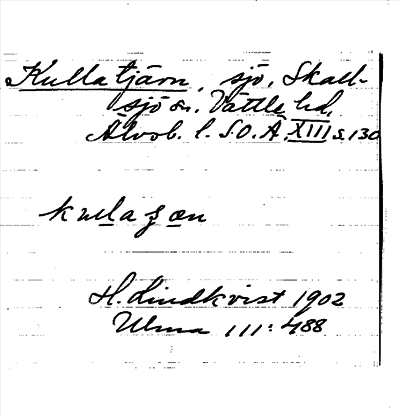 Kulla tjärn, sjö, Skall-
sjö sn. Vättle hd,
Älvsb. l. S.O.Ä. XIII s. 130
H. Lindkvist 1902
Ulma 111:488